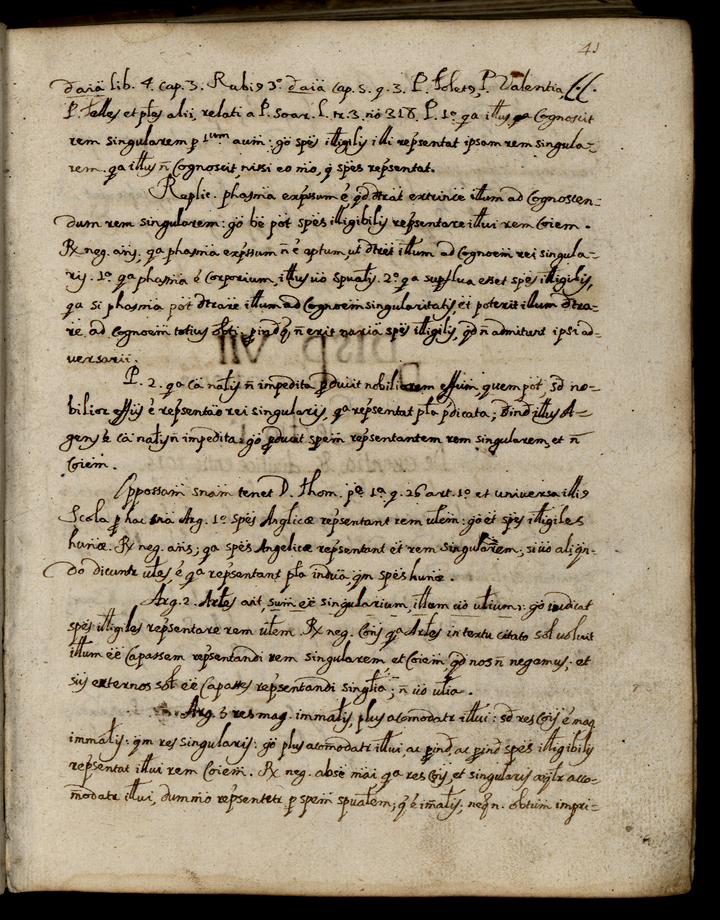 41
daĩa lib. 4. cap. 3. Rubi9 3º daĩa cap. 5. q. 3. P. Tolet9, P. Valentia
P. Telles et ples alii, relati a P. Soar. l. tr. 3. nº 318. P. 1º qa illus Cognoscit
rem singularem p 1um aum: gò spēs itlligilis illi repsentat ipsam rem singula-
rem. qa illus ñ Cognoscit, nissi eo mõ, q spēs repsentat.
Replic. phasma expssum ē qd dtrāt extrince itlum ad Cognoscen-
dum rem singularem: gò bē pot spēs itlligibilis repsentare itlui rem Coiem.
Rx neg. añs, qa phasma expssum ñ ē aptum, ut dtret itlum ad Cognoem rei singula-
ris. 1º qa phasma ē Corporium, itlus uò spualis. 2º qa supflua esset spēs itlligilis,
qa si phasma pot dtrare itlum ad Cognoem singularitatis, ēt poterit itlum dtra-
re ad Cognoem totius obti; ñ erit varia spēs itlligilis, qd ñ admitunt ipsi ad-
versarii.
P. 2. qa Cã nalis ñ impedita pducit nobiliorem effum quem pot, sd no-
bilior effus ē repsentão rei singularis, qa repsentat pla pdicata; itlus A-
gens ē Cã nalis ñ impedita: gò pducit spem repsentantem rem singularem, et ñ
Coiem.
Oppossam snam tenet D. Thom. 1º q. 26 art. 1º et universa illi9
Scola p hac Arg. 1º spēs Anglicæ repsentant rem ulem: gò ēt spēs itlligiles
humæ. Rx neg. añs; qa spēs Angelicæ repsentant ēt rem singularem; si uò aliqn-
do dicuntr ules, ē qa repsentant pla indiua, qm spēs humæ.
Arg. 2. Artles ait, sum ēē singularium, itlum uò ulium: gò indicat
spēs itlligiles repsentare rem ulem. Rx neg. Cons qa Artles in textu citato sol voluit
itlum ēē Capassem repsentandi rem singularem, et Coiem, qd nos ñ negamus; et
sus externos sol ēē Capasses repsentandi singlia; ñ uò ulia.
Arg. 3 res mag. immalis, plus acomodatr itlui: sd res Cois ē mag
immalis: qm res singularis: gò plus acomodatr itlui, ac spēs itlligibilis
repsentat itlui rem Coiem. Rx neg. absē mãi qa res Cois, et singularis æqlr acco-
modatr itlui, dummõ repsentetr p spem spualem; q ē imalis; neq n. obtum impri-